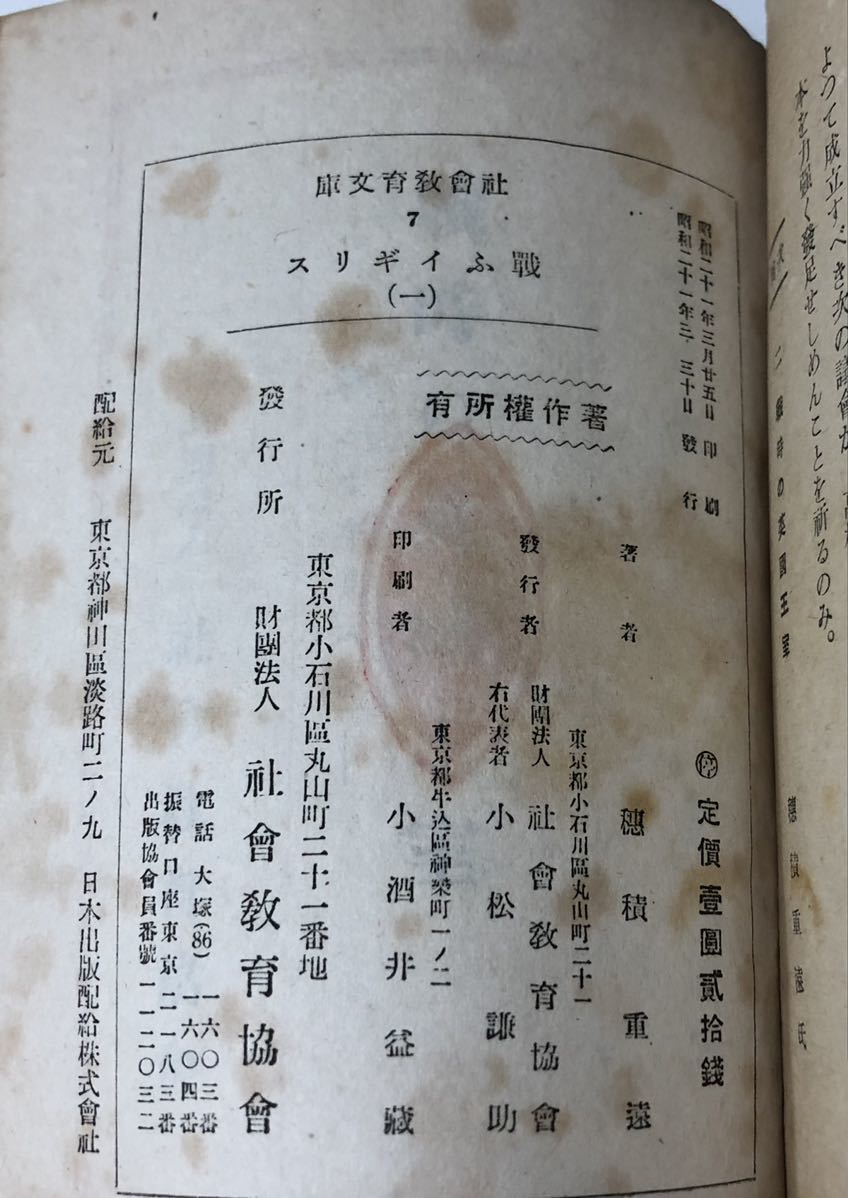 よつて成立すべき次の議會が
力強く發足せしめんことを祈るのみ。
の英國王室
穗積重遠氏
社會教育文庫
7
戰ふイギリス
(一)
昭和二十一年三月廿五日 印刷
昭和二十一年三、三十日 發行
著作權所有
㊡ 定價壹圓貳拾錢
著者 穗積重遠
東京都小石川區丸山町二十一
發行者 財團法人 社會教育協會
右代表者 小松謙助
東京都牛込區神樂町一ノ二
印刷者 小酒井益藏
東京都小石川區丸山町二十一番地
發行所 財團法人 社會教育協會
電話大塚(86) 一六〇三番 一六〇四番
振替口座東京 二一八三番
出版協會員番號 一一二〇三二
配給元 東京都神田區淡路町二ノ九 日本出版配給株式會社